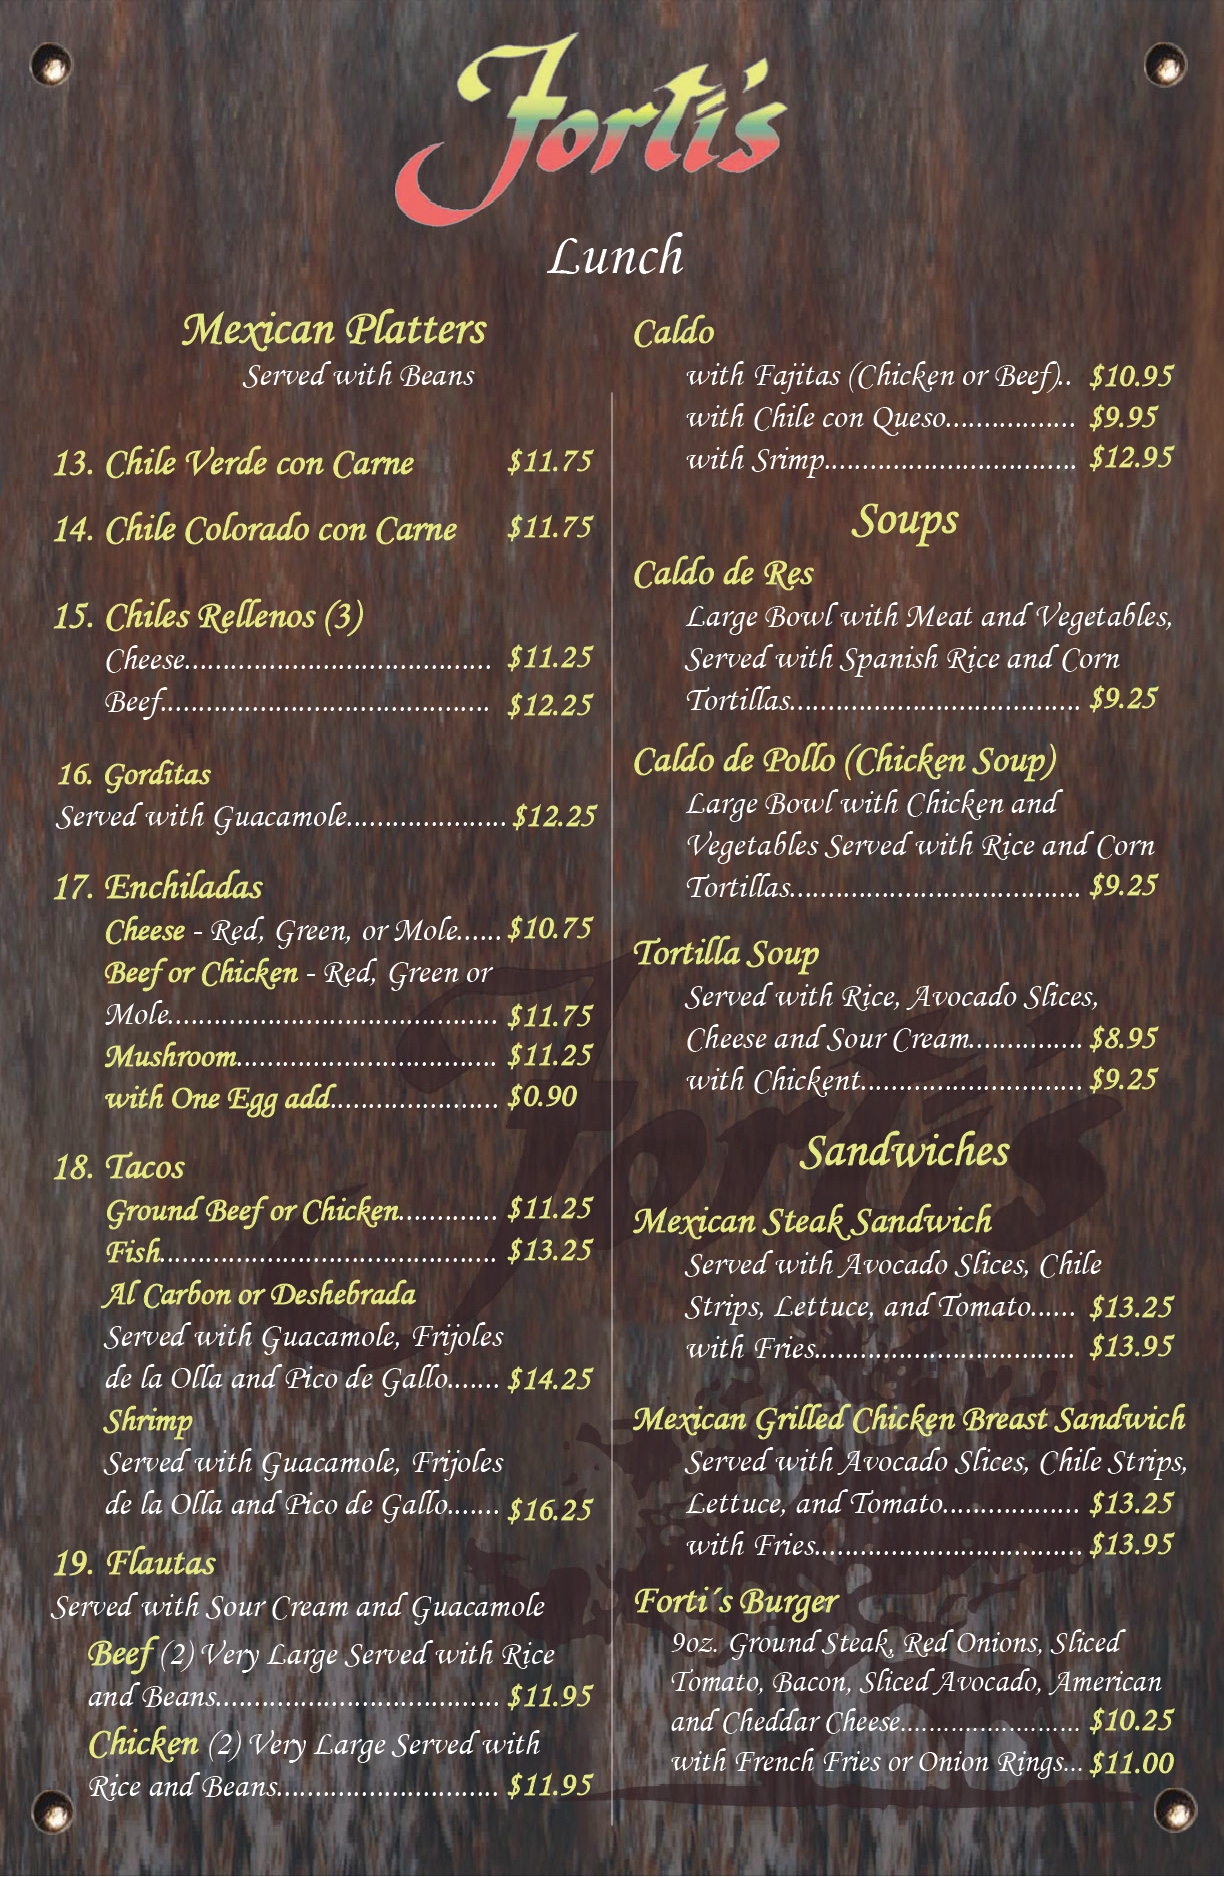 Forti's
Lunch
Mexican Platters
Served with Beans
13. Chile Verde con Carne $11.75
14. Chile Colorado con Carne $11.75
15. Chiles Rellenos (3)
Cheese........................................ $11.25
Beef.......................................... $12.25
16. Gorditas
Served with Guacamole..................... $12.25
17. Enchiladas
Cheese - Red, Green, or Mole...... $10.75
Beef or Chicken - Red, Green or
Mole........................................... $11.75
Mushroom.................................. $11.25
with One Egg add...................... $0.90
18. Tacos
Ground Beef or Chicken............. $11.25
Fish............................................ $13.25
Al Carbon or Deshebrada
Served with Guacamole, Frijoles
de la Olla and Pico de Gallo....... $14.25
Shrimp
Served with Guacamole, Frijoles
de la Olla and Pico de Gallo....... $16.25
19. Flautas
Served with Sour Cream and Guacamole
Beef (2) Very Large Served with Rice
and Beans..................................... $11.95
Chicken (2) Very Large Served with
Rice and Beans............................. $11.95
Caldo
with Fajitas (Chicken or Beef).. $10.95
with Chile con Queso................. $9.95
with Srimp................................. $12.95
Soups
Caldo de Res
Large Bowl with Meat and Vegetables,
Served with Spanish Rice and Corn
Tortillas...................................... $9.25
Caldo de Pollo (Chicken Soup)
Large Bowl with Chicken and
Vegetables Served with Rice and Corn
Tortillas...................................... $9.25
Tortilla Soup
Served with Rice, Avocado Slices,
Cheese and Sour Cream............... $8.95
with Chickent............................. $9.25
Sandwiches
Mexican Steak Sandwich
Served with Avocado Slices, Chile
Strips, Lettuce, and Tomato...... $13.25
with Fries.................................. $13.95
Mexican Grilled Chicken Breast Sandwich
Served with Avocado Slices, Chile Strips,
Lettuce, and Tomato.................. $13.25
with Fries................................... $13.95
Forti´s Burger
9oz. Ground Steak, Red Onions, Sliced
Tomato, Bacon, Sliced Avocado, American
and Cheddar Cheese........................ $10.25
with French Fries or Onion Rings... $11.00
Forti's